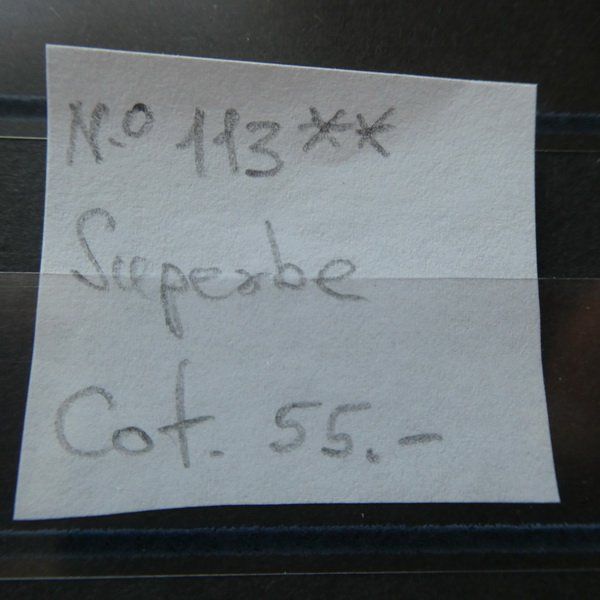 N.o 113**
Superbe
Cot. 55.-